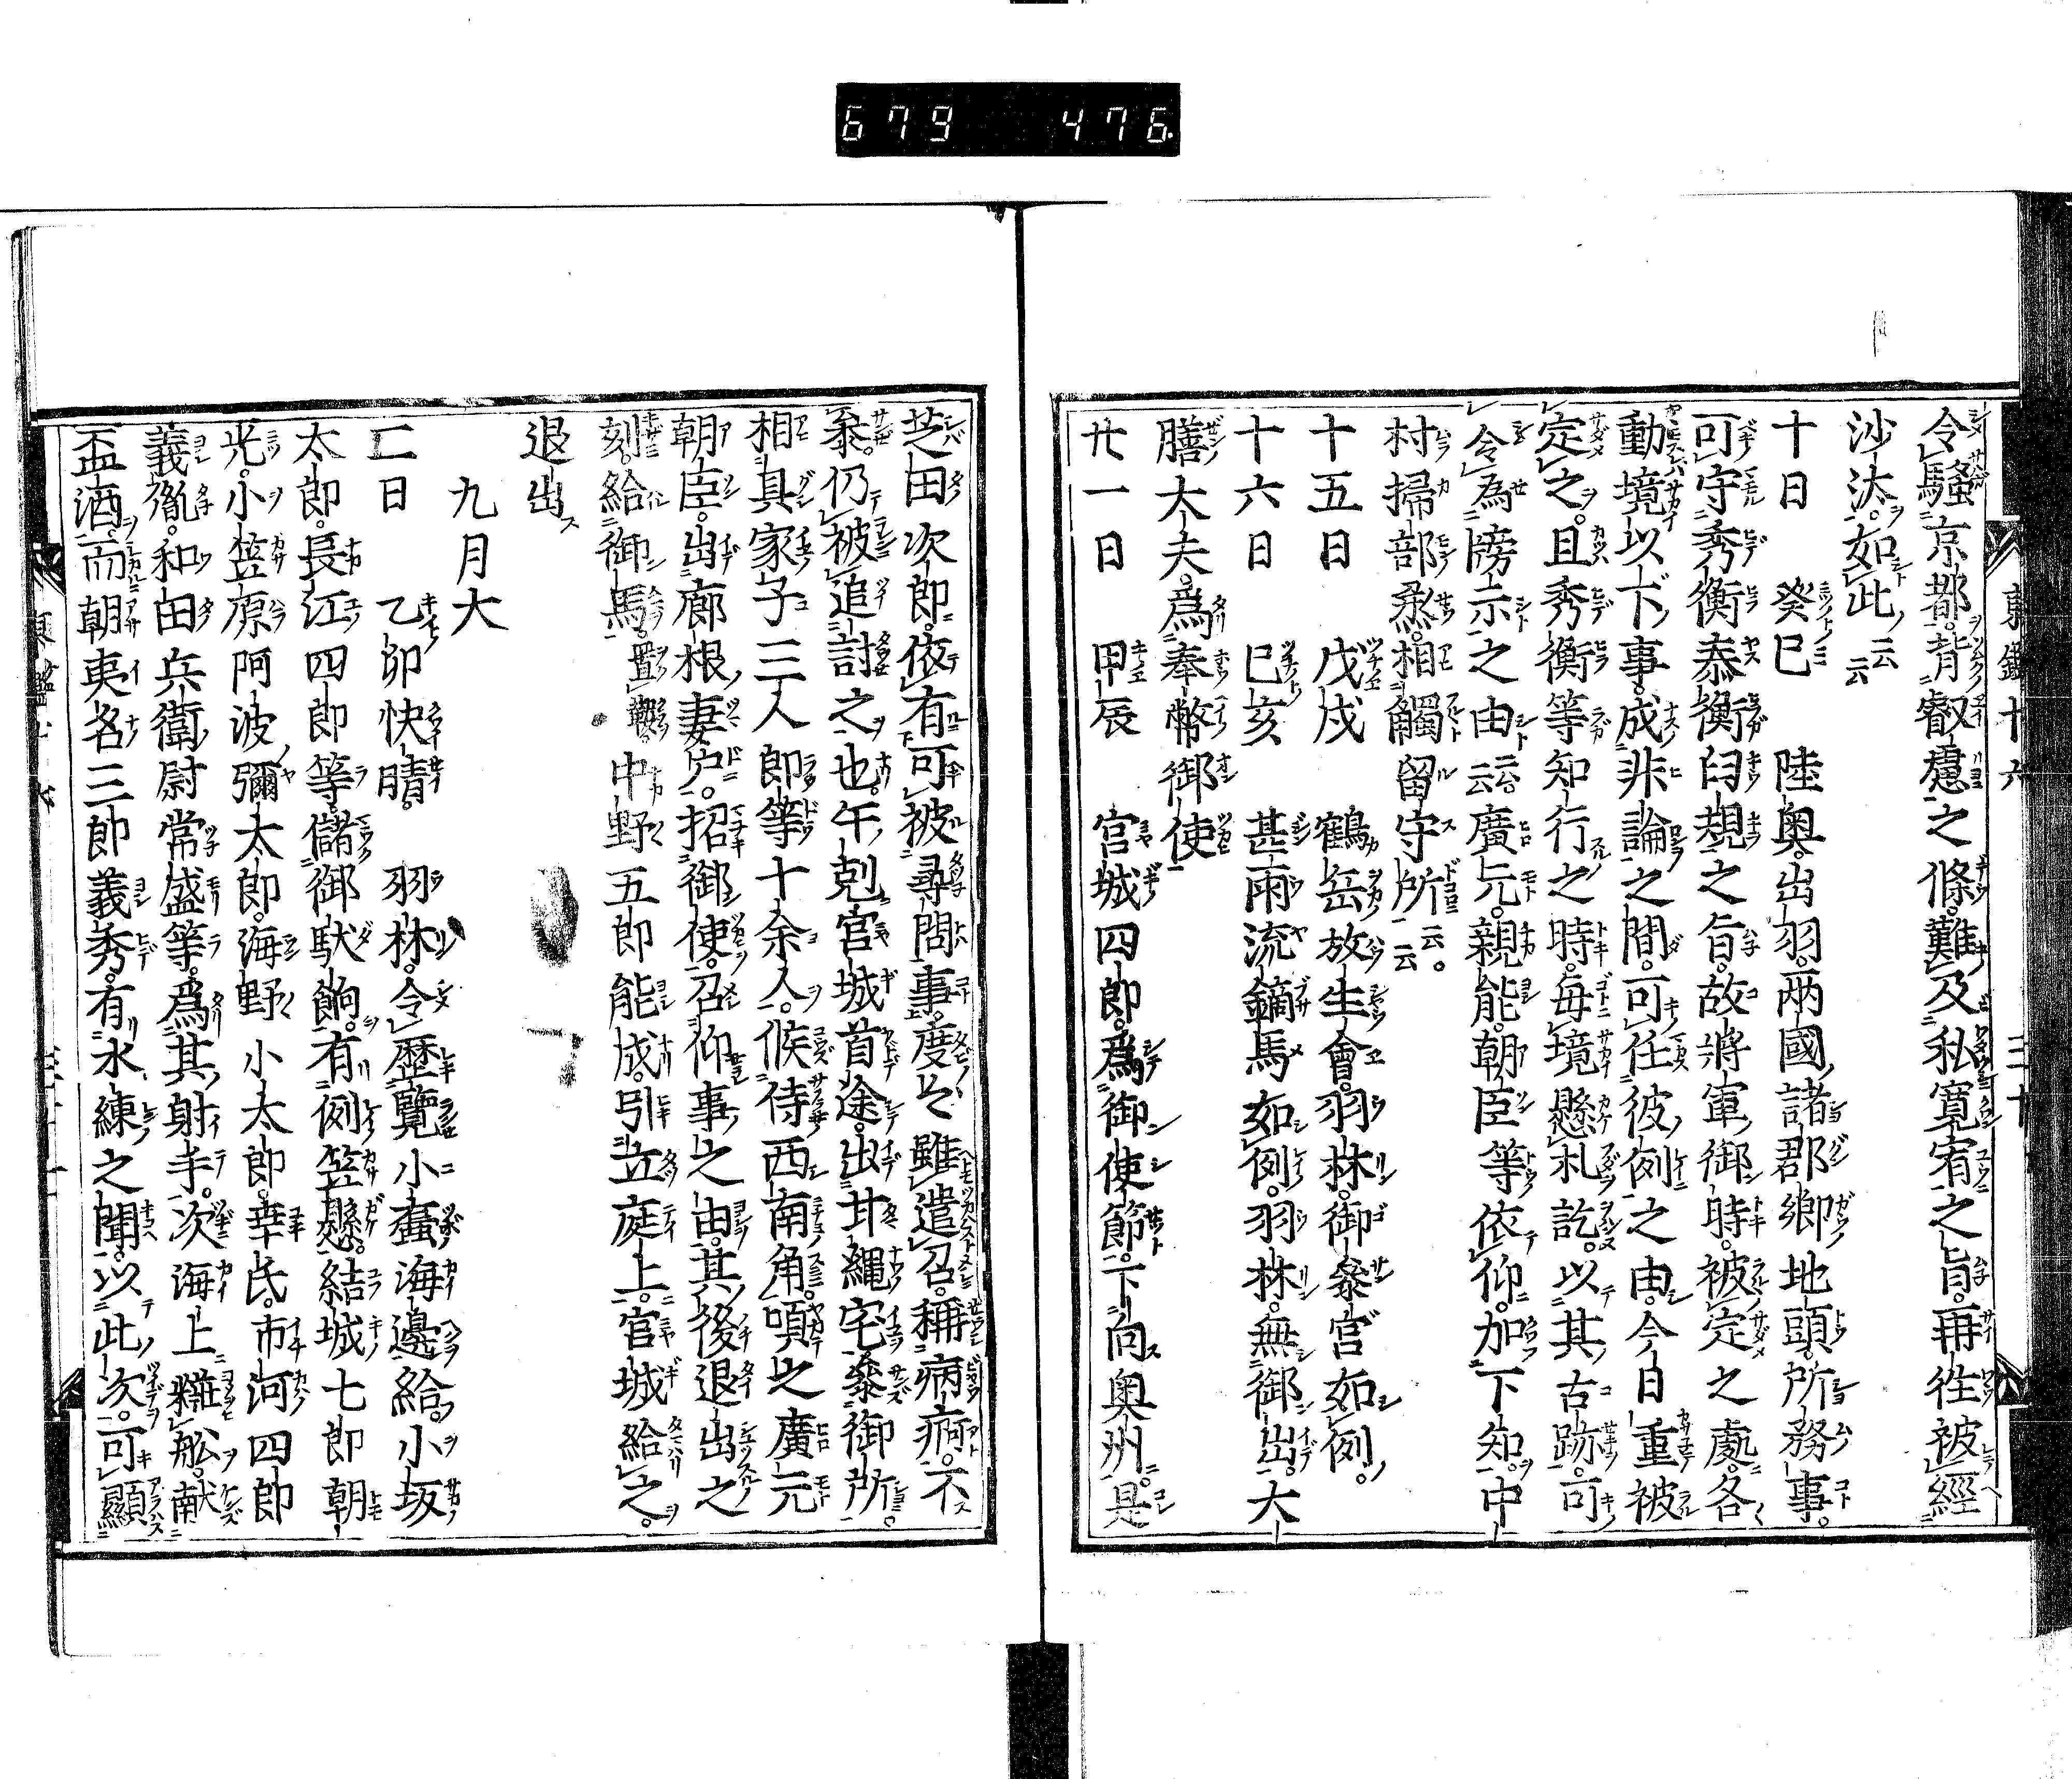 679 476
令騒京都背叡慮之條難及私寛宥之旨再往被經
沙汰如此云云
十日 癸巳 陸奥出羽兩國諸郡郷地頭所務事
可守秀衡泰衡旧規之旨故將軍御時被定之處各
動境以下事成非論之間可任彼例之由今日重被
定之且秀衡等知行之時毎境懸札訖以其古跡可
令為牓示之由云云廣元親能朝臣等依仰加下知中
村掃部丞相觸留守所云云
十五日 戊戌 鶴岳放生會羽林御參宮如例
十六日 己亥 甚雨流鏑馬如例羽林無御出大
膳大夫爲奉幣御使
廿一日 甲辰 宮城四郎爲御使節下向奥州是
芝田次郎依有可被尋問事度々雖遣召稱病痾不
參仍被追討之也午剋宮城首途出甘縄宅參御所
相具家子三人郎等十余人候侍西南角頃之廣元
朝臣出廊根妻戸招御使召仰事之由其後退出之
刻給御馬置鞍中野五郎能成引立庭上宮城給之
退出
九月大
二日 乙卯快晴 羽林令歴覽小壷海邊給小坂
太郎長江四郎等儲御駄餉有例笠懸結城七郎朝
光小笠原阿波彌太郎海野小太郎幸氏市河四郎
義胤和田兵衛尉常盛等爲其射手次海上粧舩献
盃酒而朝夷名三郎義秀有水練之聞以此次可顯